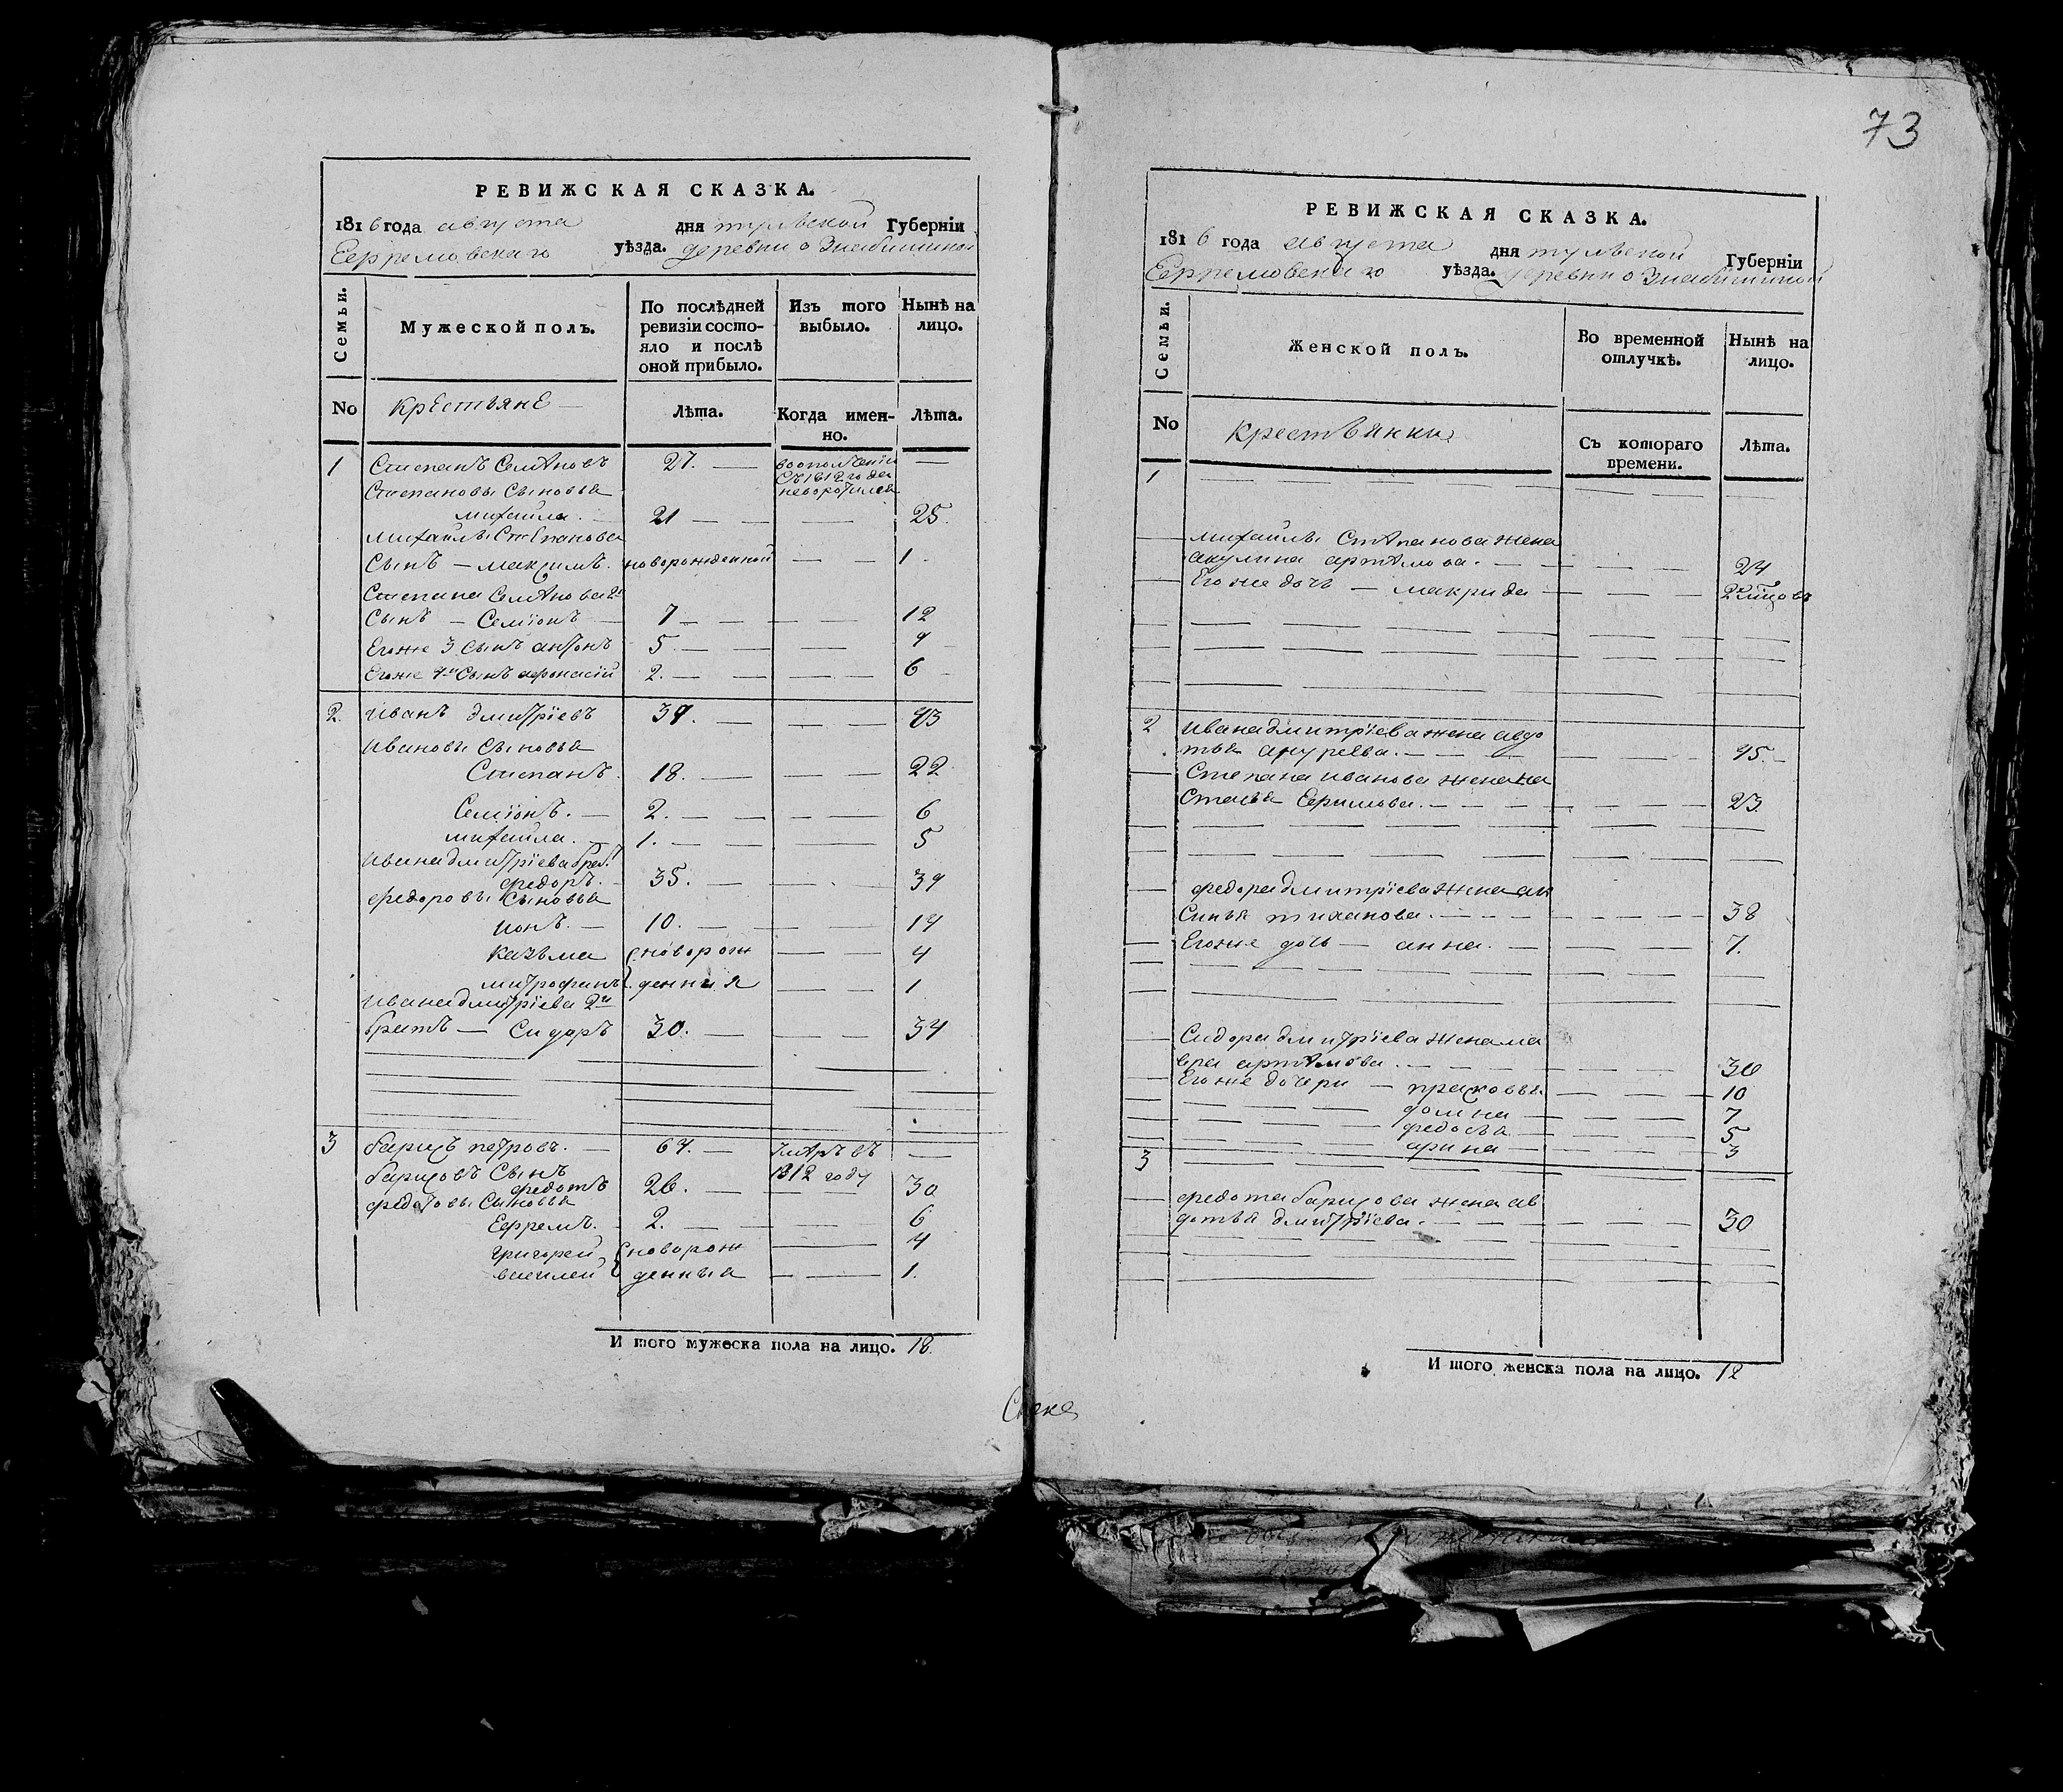 РЕВИЖСКАЯ СКАЗКА.
1816 года августа дня тульской Губерніи
Ефремовскаго уѣзда. деревни
Семьи. Мужеской полъ. По послѣдней ревизіи состояло и послѣ оной прибыло. Изъ того выбыло. Нынѣ на лицо.
No крестьяне Лѣта. Когда именно. Лѣта.
1 Степанъ Семѧновъ 27. вополчении
Степановы Сыновья с 1812 года
неворотился
михайла. 21 25.
михайлы Степанова
Сынъ – максимъ. новорожденной 1
Степана Семѧнова 2й
Сынъ – Семіонъ 7 12
Егоже 3 сынъ антонъ 5 9
Егоже 4й Сынъ афонасій 2. 6
2. иванъ дмитріевъ 39. 43
ивановы Сыновья
Степанъ. 18. 22
Семіонъ. 2. 6
михайла. 1. 5
ивана дмитріева брат
федоръ. 35. 39
федоровы Сыновья
ионъ. 10. 14
казьма новорож 4
митрофанъ денныя 1
ивана дмитріева 2й
братъ – Сидоръ 30. 34
3 барисъ петровъ. 64. умѧръ въ
барисовъ Сынъ 1812 году
федотъ 26. 30
федотовы Сыновья
Ефремъ. 2. 6
григорей новорож 4
василей денныя 1.
И того мужеска пола на лицо. 18.
73
РЕВИЖСКАЯ СКАЗКА.
1816 года августа дня тульской Губерніи
Ефремовскаго уѣзда. деревни
Семьи. Женской полъ. Во временной отлучкѣ. Нынѣ на лицо.
No крестьянки Съ котораго времени. Лѣта.
1
михайлы Стѧпанова жена
акулина артѧмова. 24
Егоже дочь – макрида
2 ивана дмитріева жена авдо
тья 45.
Степана иванова жена на
стасья Ефимова. 23.
федора дмитріева жена ак
синья тиханова. 38
Егоже дочь – анна. 7.
Сидора дмитріева жена ма
вра артѧмова. 30
Егоже дочери – прасковья 10
домна 7
федосья 5
арина 3
3
федота барисова жена ав
дотья дмитріева. 30
И того женска пола на лицо. 12